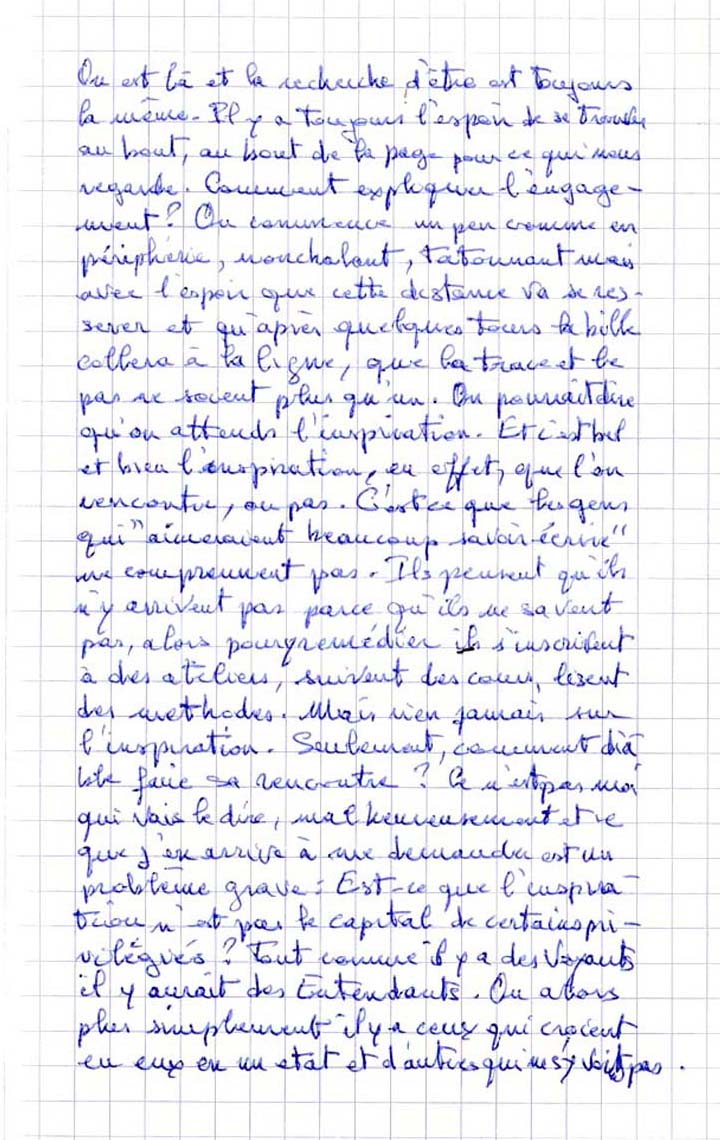 On est là et la recherche d'être est toujours
la même. Il y a toujours l'espoir de se trouver
au bout, au bout de la page pour ce qui nous
regarde. Comment expliquer l'engage-
ment? On commence un peu comme en
périphérie, nonchalant, tatonnant mais
avec l'espoir que cette distance va se res-
serer et qu'après quelques tours la bille
collera à la ligne, que la trace et le
pas ne soient plus qu'un. On pourrait dire
qu'on attends l'inspiration. Et c'est bel
et bien l'inspiration, en effet, que l'on
rencontre, ou pas. C'est ce que les gens
qui "aimeraient beaucoup savoir écrire"
ne comprennent pas. Ils pensent qu'ils
n'y arrivent pas parce qu'ils ne savent
pas, alors pour y remédier ils s'inscrivent
à des ateliers, suivent des cours, lisent
des methodes. Mais rien jamais sur
l'inspiration. Seulement, comment dia-
ble faire sa rencontre? Ce n'est pas moi
qui vais le dire, malheureusement et ce
que j'en arrive à me demander est un
problème grave: Est-ce que l'inspira-
tion n'est pas le capital de certains pri-
vilégiés? Tout comme il y a des Voyants
il y aurait des Entendants. Ou alors
plus simplement il y a ceux qui croient
en eux en un etat et d'autres qui ne s'y pas.